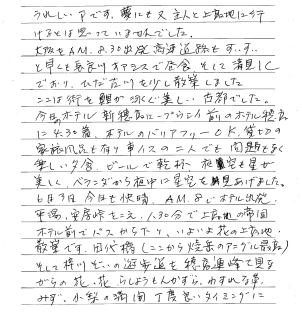 うれしい〇です。夢にも又主人と上高地に行
けるとは思っていませんでした。
大阪をA.M. 8.30出発 高速道路をすいすい
と早くも長良川オアシスで昼食 そして清見IC
でおり、ひだ古川を少し散策しました
ここは街を鯉が泳ぐ美しい古都でした。
今日のホテル 新穂高ロープウェイ前のホテル穂高
に4.30着、ホテルのバリアフリーOK、貸切の
家族風呂も有り車イスの二人でも問題なく
楽しい夕食、ビールで乾杯 夜空も星が
美しく、ベランダから夜中に星空を見あげました。
6月3日 今日も快晴、A.M. 8. ホテル出発、
平湯、安房峠をこえ、1人30分で上高地の帝国
ホテル前でバスからおり、いよいよ花の上高地、
散策です。田代橋（ここから焼岳のアングル最高）
そして梓川ぞいの遊歩道を穂高連峰を見
ながらの花、花 らしょうもんかずら、わすれな草、
みず、小梨の満開 丁度良いタイミングに